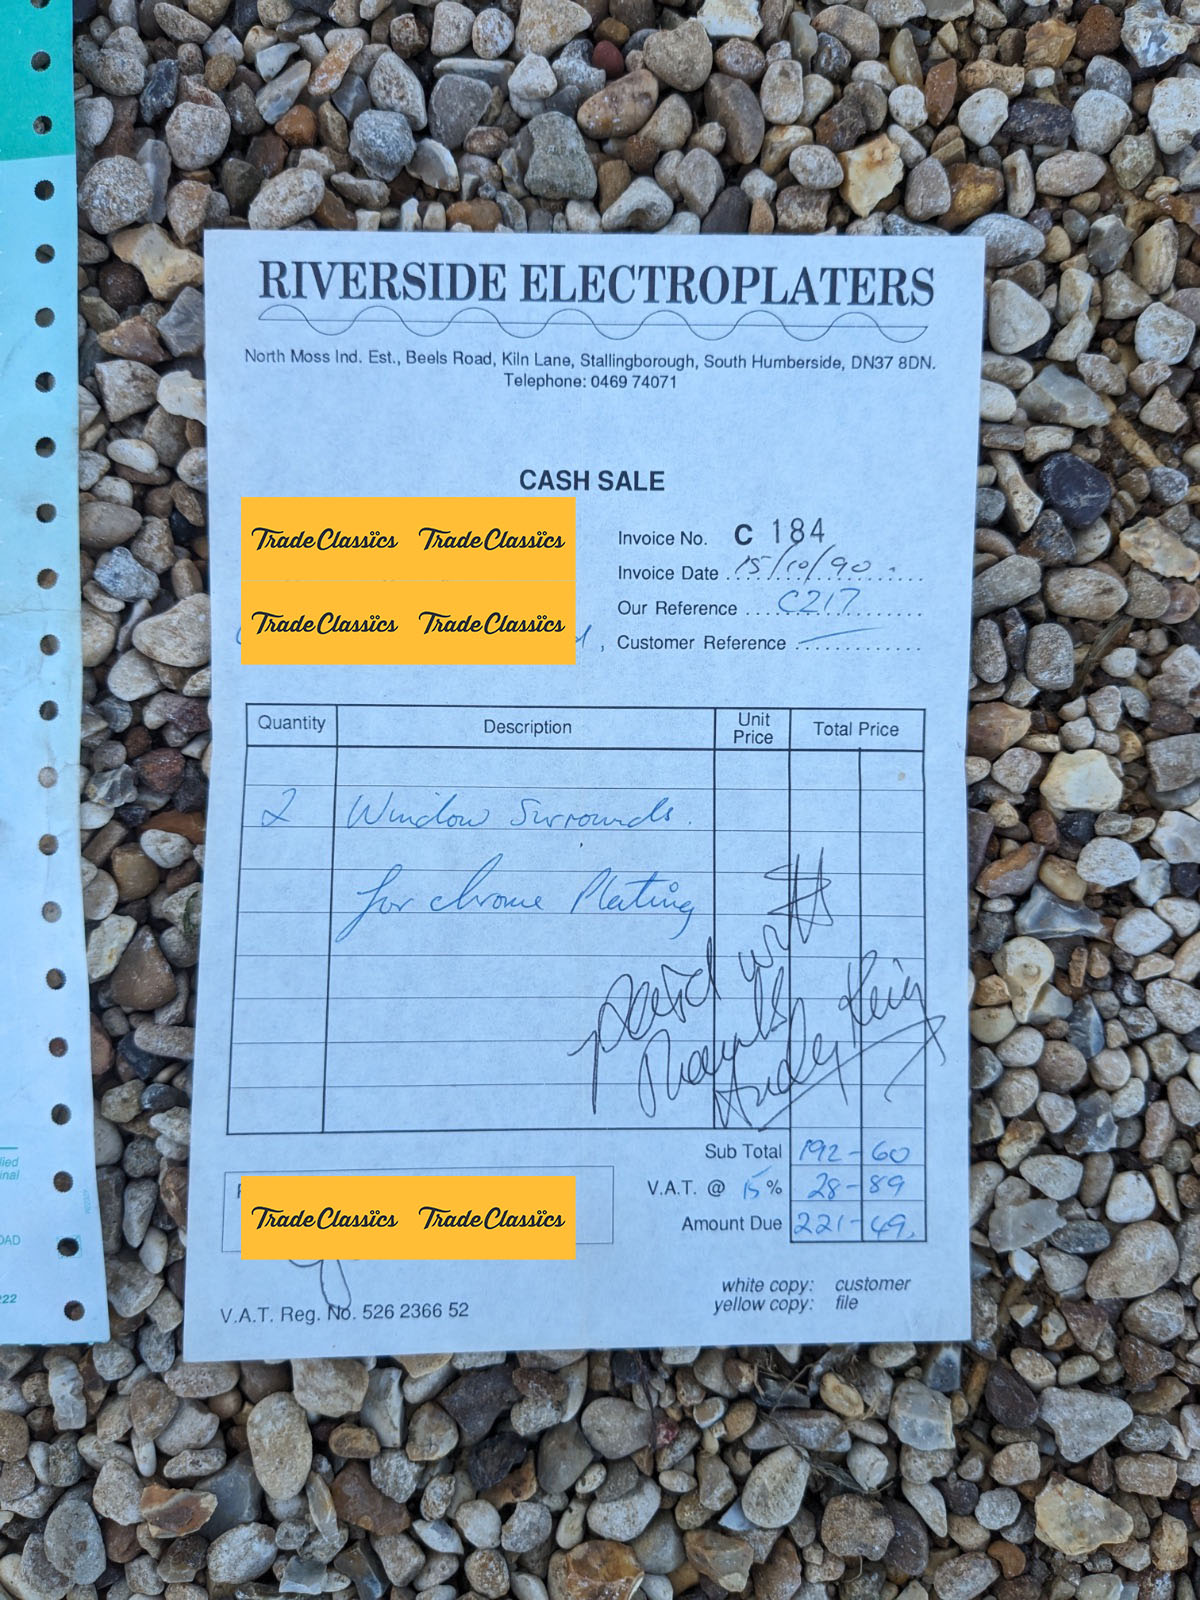 RIVERSIDE ELECTROPLATERS
North Moss Ind. Est., Beels Road, Kiln Lane, Stallingborough, South Humberside, DN37 8DN.
Telephone: 0469 74071
CASH SALE
TradeClassics TradeClassics
TradeClassics TradeClassics
Invoice No. C 184
Invoice Date 15/10/90
Our Reference C217
Customer Reference
Quantity Description Unit Price Total Price
2 Window Surrounds.
for chrome Plating
paid with
thanks
Sub Total 192-60
V.A.T. @ 15% 28-89
Amount Due 221-49
TradeClassics TradeClassics
white copy: customer
yellow copy: file
V.A.T. Reg. No. 526 2366 52